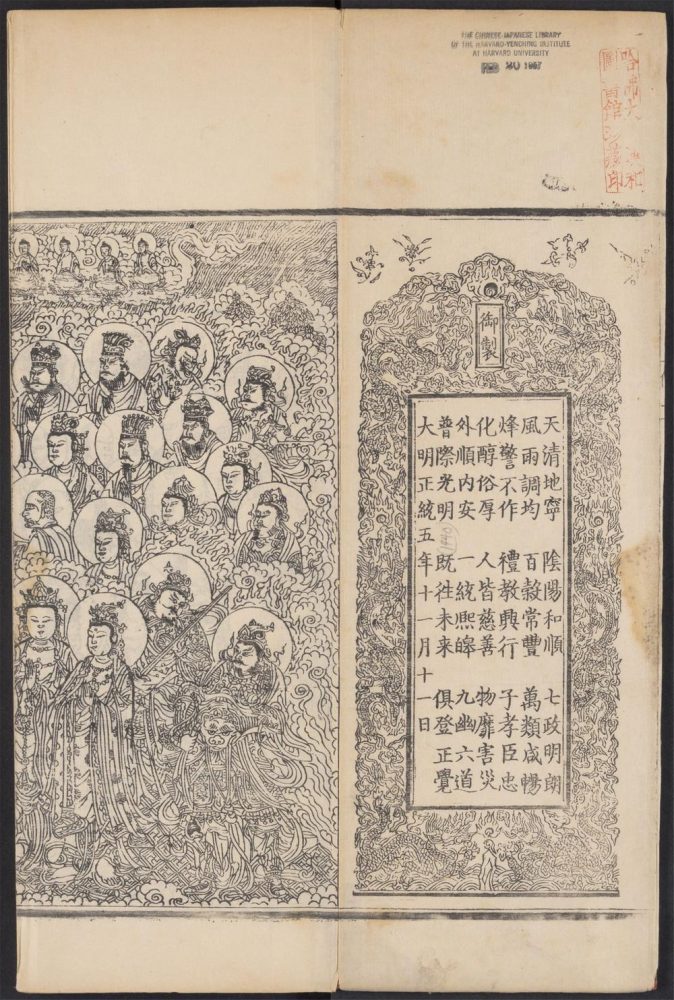 THE CHINESE-JAPANESE LIBRARY
OF THE HARVARD-YENCHING INSTITUTE
AT HARVARD UNIVERSITY
FEB
哈佛大漢和
圖書館珍藏印
御製
天清地寧 陰陽和順 七政明朗
風雨調均 百穀常豐 萬類咸暢
烽警不作 禮教興行 子孝臣忠
化醇俗厚 人皆慈善 物靡害災
外順內安 一統熙皞 九幽六道
普際光明 既往未来 俱登正覺
大明正統五年十一月十一日